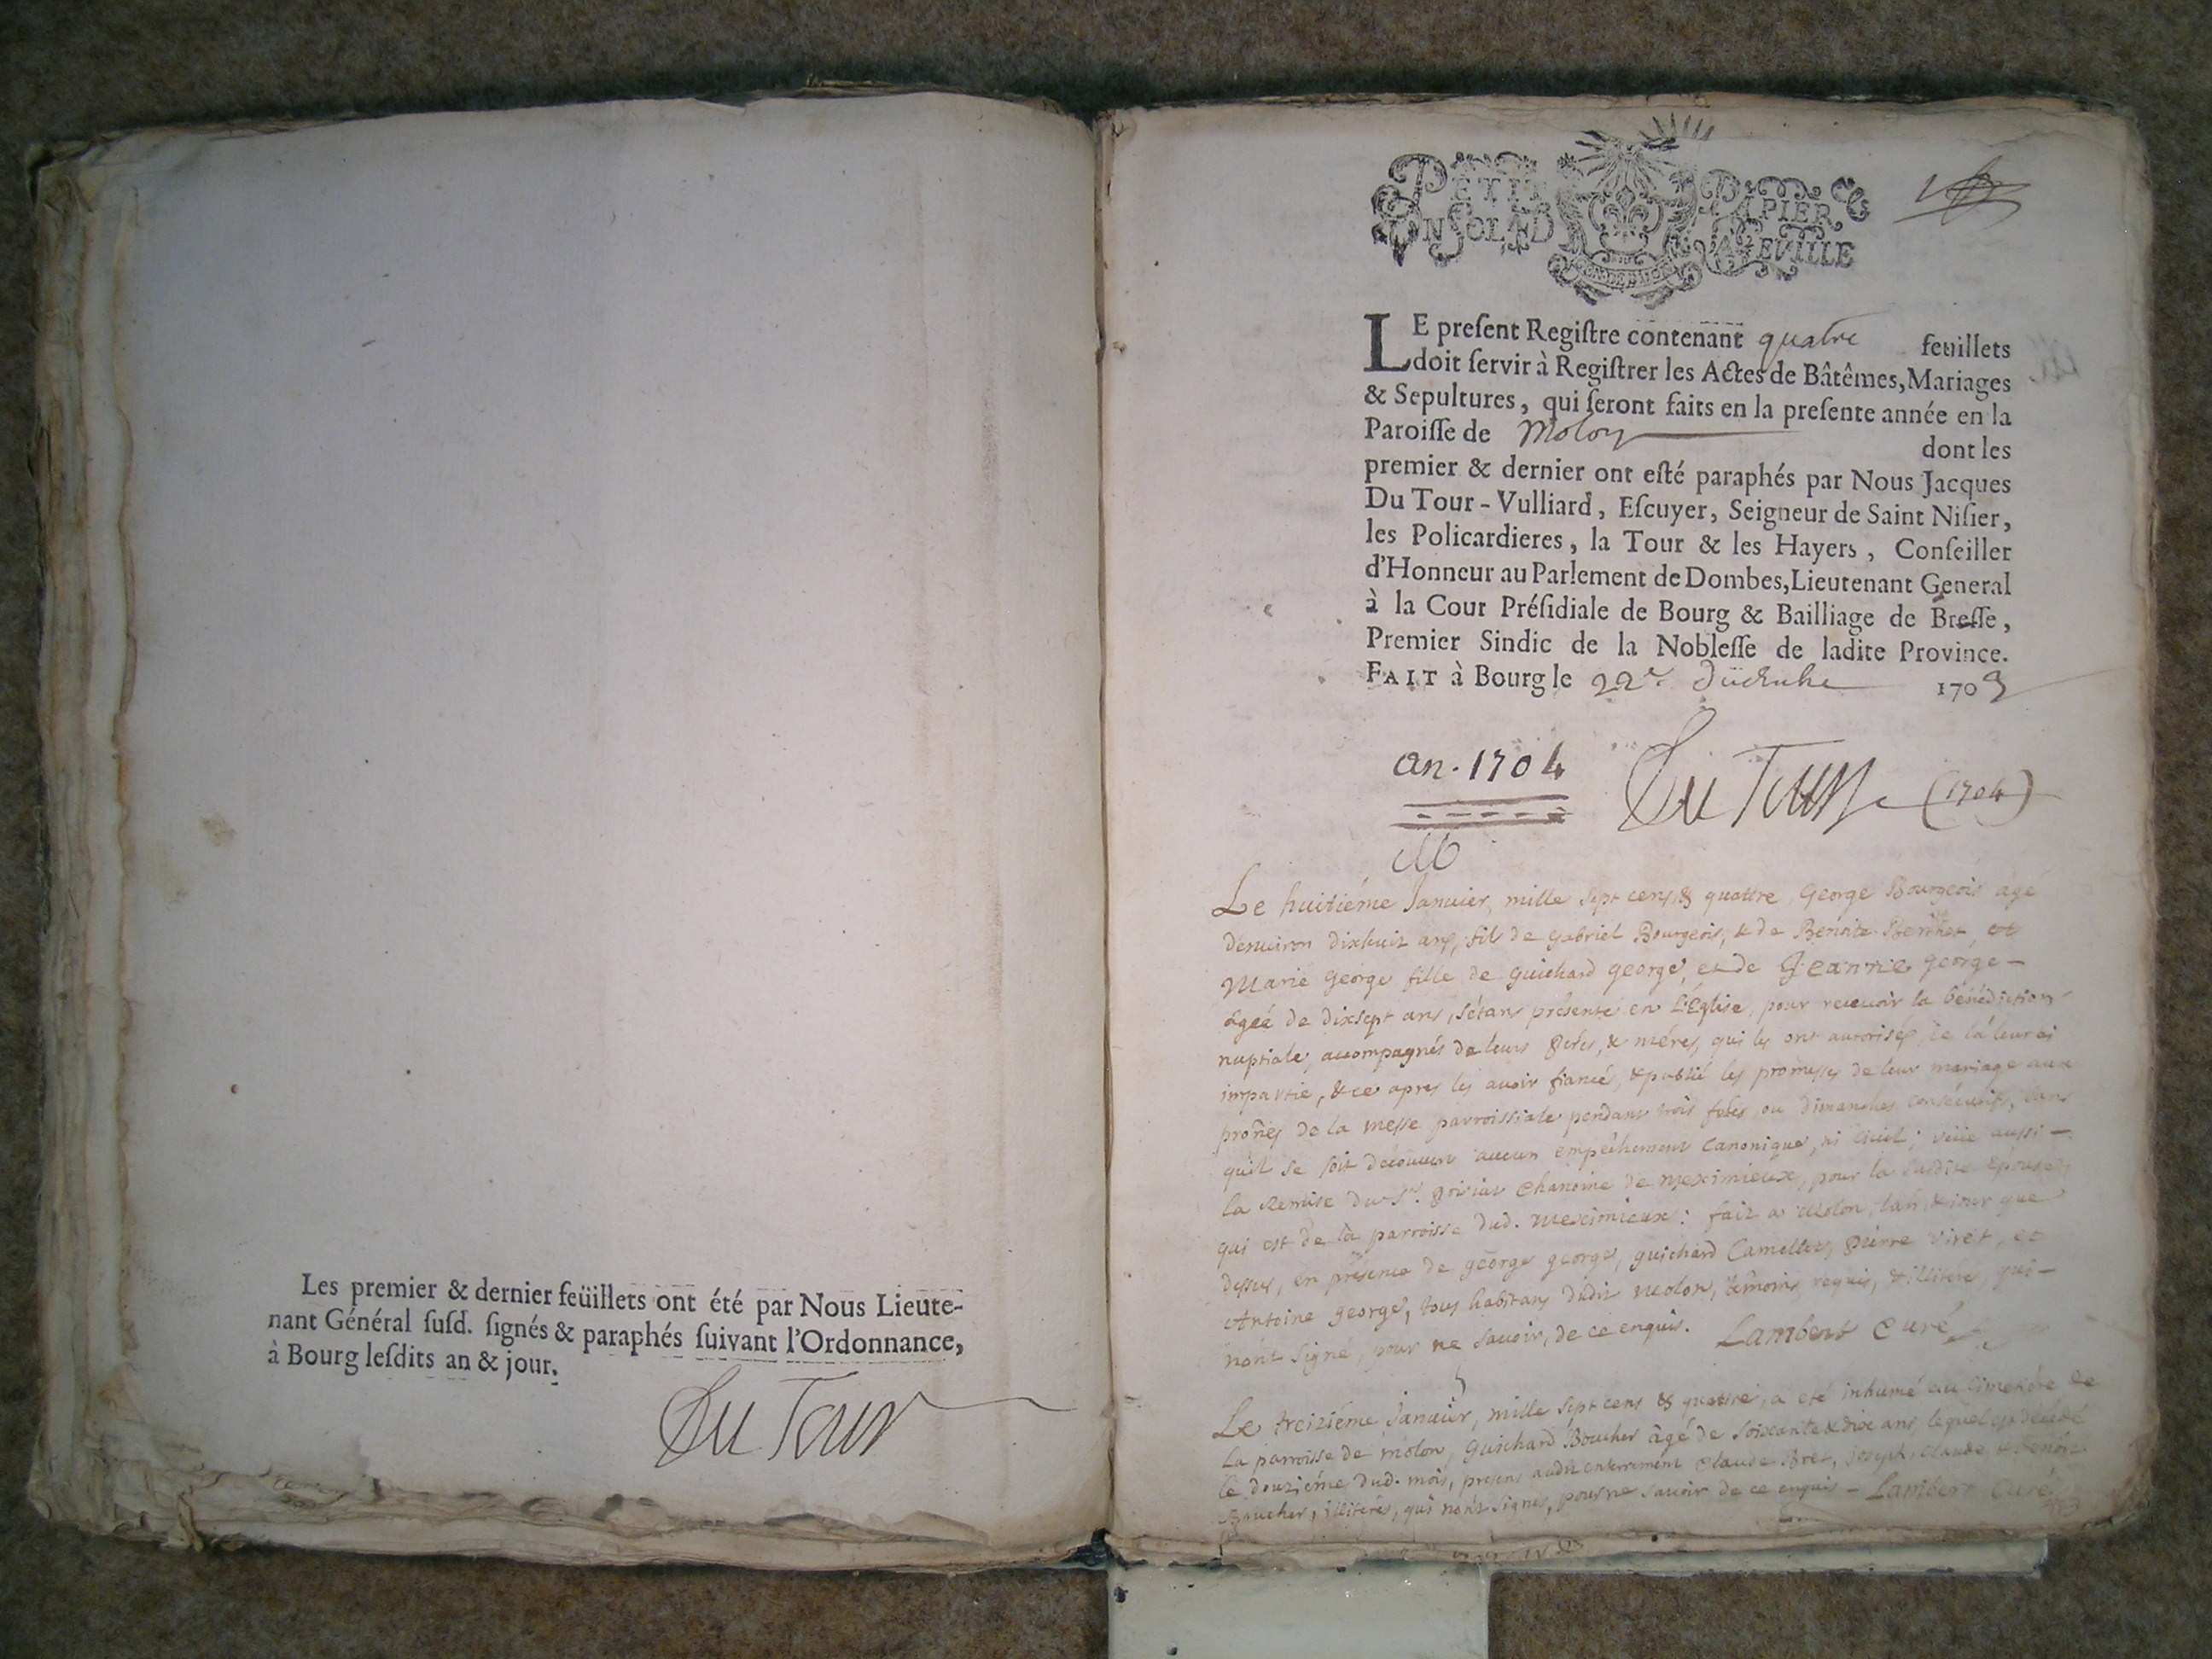 Les premier & dernier feüillets ont été par Nous Lieute-
nant Général suſd. ſignés & paraphés ſuivant l'Ordonnance,
à Bourg leſdits an & jour.
Du Tour
PETIT PAPIER
LE preſent Regiſtre contenant quatre feuillets
doit ſervir à Regiſtrer les Actes de Bâtêmes, Mariages
& Sepultures, qui ſeront faits en la preſente année en la
Paroiſſe de Molon dont les
premier & dernier ont eſté paraphés par Nous Jacques
Du Tour-Vulliard, Eſcuyer, Seigneur de Saint Niſier,
les Policardieres, la Tour & les Hayers, Conſeiller
d'Honneur au Parlement de Dombes, Lieutenant General
à la Cour Préſidiale de Bourg & Bailliage de Breſſe,
Premier Sindic de la Nobleſſe de ladite Province.
FAIT à Bourg le 22e 1703
an. 1704
Du Tour (1704)
M
Le huitiéme Januier, mille sept cens & quattre George Bourgeois agé
d'enuiron dixhuit ans, fils de Gabriel Bourgeois, & de Benoite Berthet, et
Marie George fille de guichard george, et de Jeanne george
âgée de dixsept ans, s'étans présenté en L'Eglise, pour receuoir la bénédiction
nuptiale, accompagnés de leurs péres, & méres, qui les ont autorisés, je la leur ai
impartie, & ce apres les auoir fiancé, & publié les promesses de leur mariage aux
prônes de la messe parroissiale pendant trois fetes, ou dimanches consécutifs, sans
quil se soit decouuert aucun empêchement canonique, ni ciuil; veüe aussi
la Remise du Sr. chanoine de meximieux, pour la susdite épouse
qui est de la parroisse dud. meximieux: fait a Molon, l'an, & iour que
dessus, en présence de george george, guichard Camellet, pierre viret, et
Antoine george, tous habitans dudit molon, témoins requis, & illitérés, qui
n'ont signé, pour ne sauoir, de ce enquis. Lambert Curé
Le treiziéme Januier, mille sept cens & quattre, a été inhumé au Cimetiére de
La parroisse de molon, Guichard Boucher âgé de soixante & dix ans, lequel est décédé
le douziéme dud. mois, presens audit enterrement Claude Bret, Joseph, Claude & Benoit
Boucher, illitérés, qui n'ont signes, pour ne sauoir de ce enquis - Lambert Curé